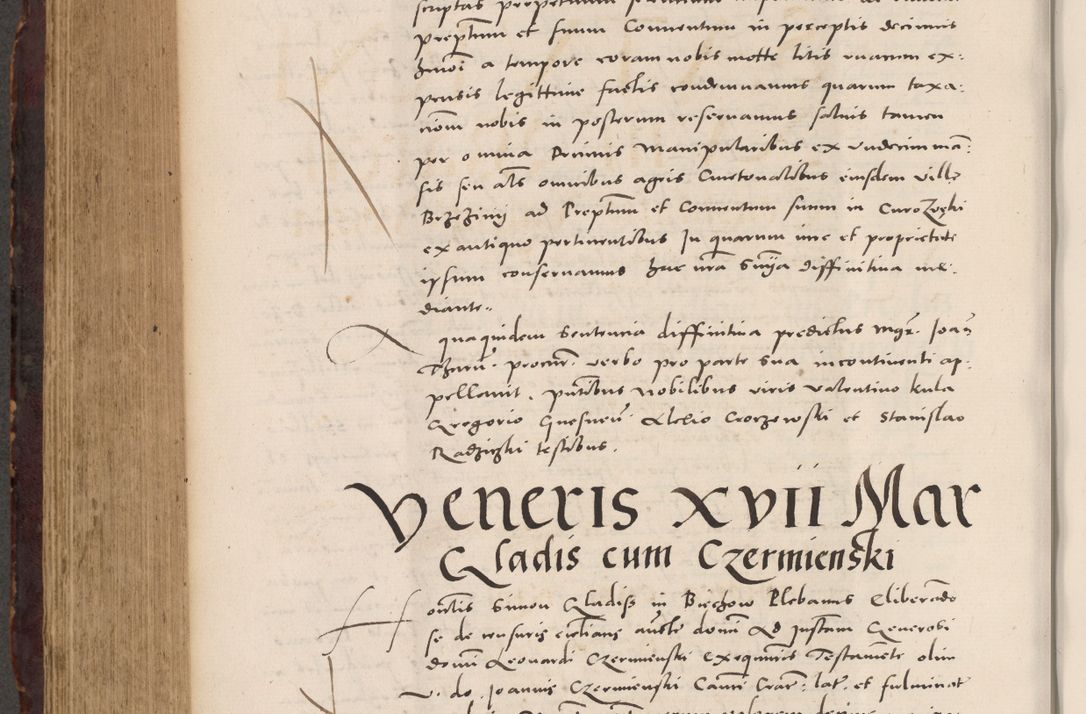 preptum et suum Conventum in perceptis decimis
hmoi a tempore coram nobis motte litis unacum ex:
pensis legittime factis condemnamus quarum taxa:
cionem nobis in posterum reservamus salvis tamen
per omnia Decimis Manipularibus ex undecim man:
sis seu als omnibus agris Cmetonalibus eiusdem ville
Brzezinij ad Preptum et Conventum suum in Curozweki
ex antiquo pertinentibus In quarum iure et proprietate
ipsum conservamus hac nra Smya diffinitiva me:
diante..
qua quidem Sentencia diffinitiva predictus mgr. Joan
procur. verbo pro parte sua incontinenti ap:
pellavit. pntibus Nobilibus viris valentino kula
Gregorio Gnesnen Alexio Croczewski et Stanislao
Radziczki testibus.
Veneris XVII Mar
Gladis cum Czermienski
Hontis Simon Gladiss in Biechow Plebanus Cliberando
se de censuris ecclians aucte domi Ad Instam Generosi
domi Leonardi Czermienski Exequutis Testamete olim
V. do. Joannis Czermienski Canti Crac: lat. et fulminat